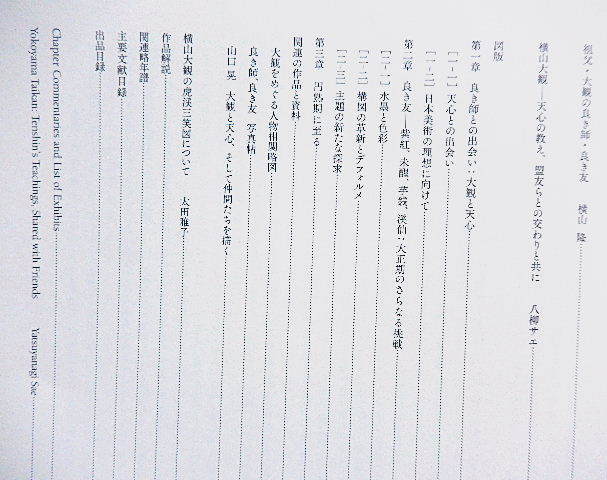 祖父・大観の良き師・良き友　横山 隆
横山大観―天心の教え、盟友らとの交わりと共に　八柳サエ
図版
第一章　良き師との出会い：大観と天心
［一-一］天心との出会い
［一-二］日本美術の理想に向けて
第二章　良き友―紫紅、未醒、芋銭、渓仙：大正期のさらなる挑戦
［二-一］水墨と色彩
［二-二］構図の革新とデフォルメ
［二-三］主題の新たな探求
第三章　円熟期に至る
関連の作品と資料
大観をめぐる人物相関略図
良き師、良き友　写真帖
山口 晃　大観と天心、そして仲間たちを描く
横山大観の虎渓三笑図について　太田雅子
作品解説
関連略年譜
主要文献目録
出品目録
Chapter Commentaries and List of Exhibits
Yokoyama Taikan: Tenshin's Teachings, Shared with Friends　Yatsuyanagi Sae